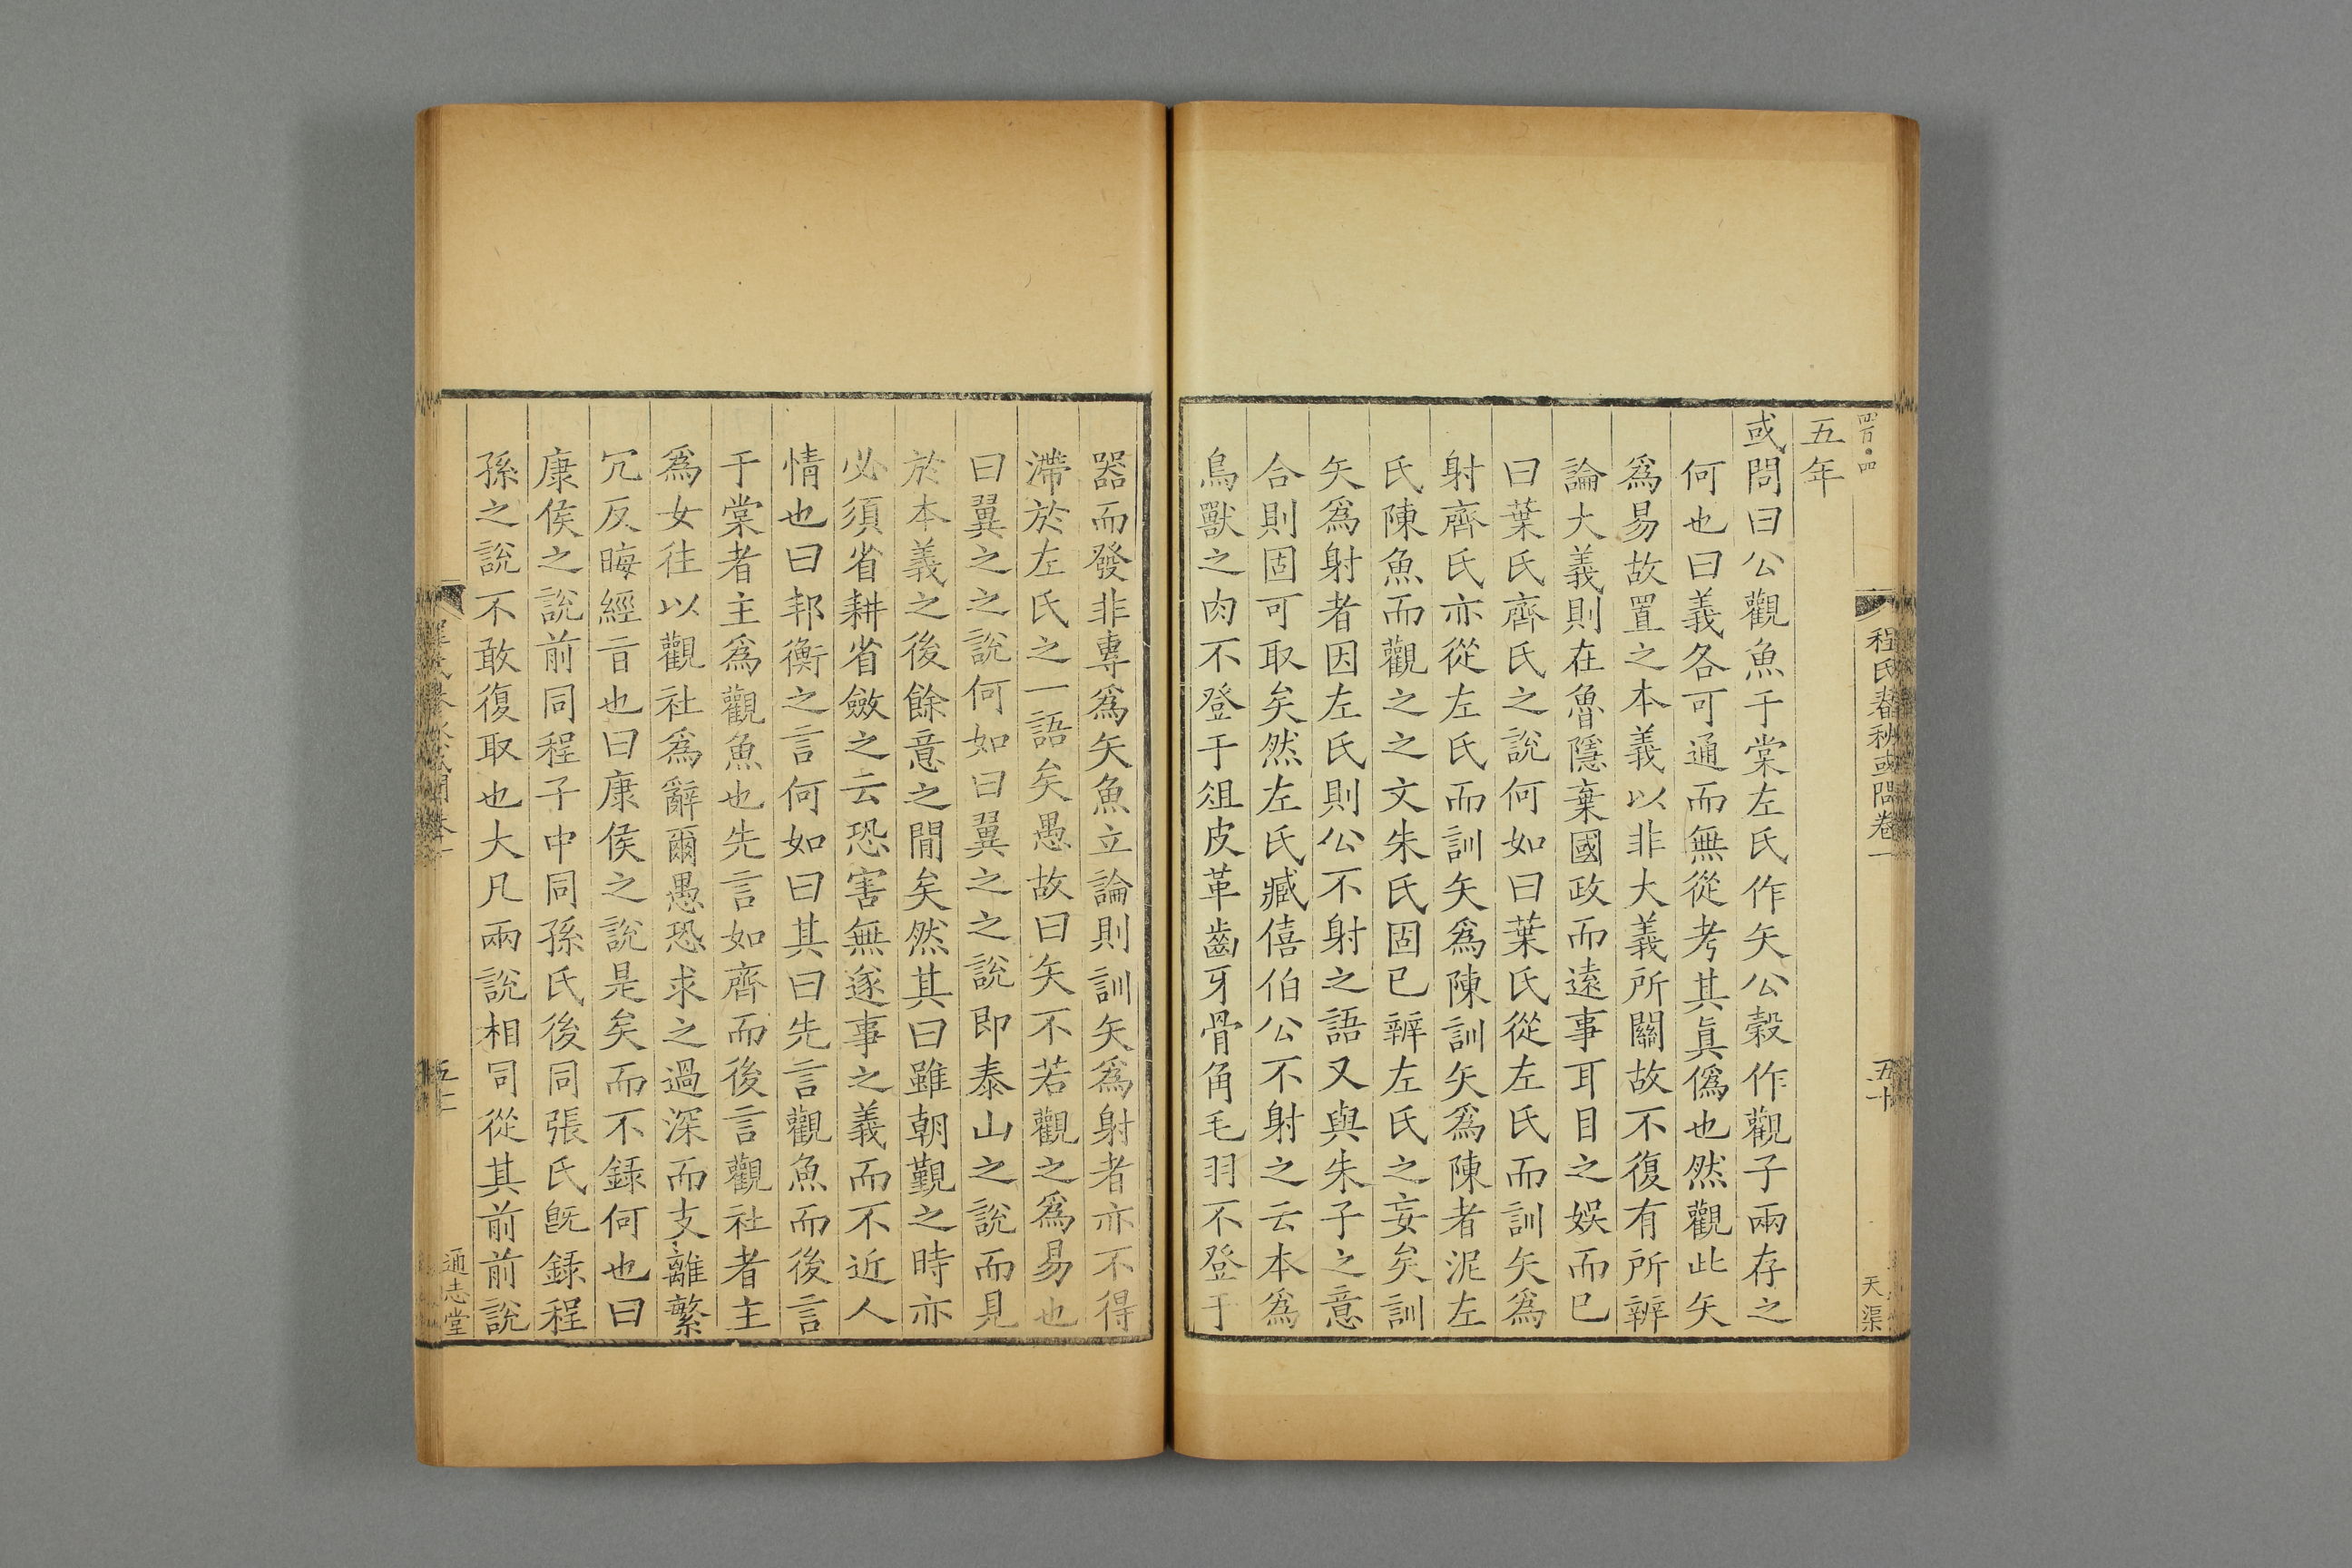 程氏春秋或問卷一
五十
天渠
五年
或問曰公觀魚于棠左氏作矢公穀作觀子兩存之
何也曰義各可通而無從考其眞僞也然觀此矢
爲易故置之本義以非大義所關故不復有所辨
論大義則在魯隱棄國政而遠事耳目之娛而已
曰葉氏齊氏之說何如曰葉氏從左氏而訓矢爲
射齊氏亦從左氏而訓矢爲陳訓矢爲陳者泥左
氏陳魚而觀之之文朱氏固已辨左氏之妄矣訓
矢爲射者因左氏則公不射之語又與朱子之意
合則固可取矣然左氏臧僖伯公不射之云本爲
鳥獸之肉不登于俎皮革齒牙骨角毛羽不登于
器而發非專爲矢魚立論則訓矢爲射者亦不得
滯於左氏之一語矣愚故曰矢不若觀之爲易也
曰翼之之說何如曰翼之之說即泰山之說而見
於本義之後餘意之間矣然其曰雖朝覲之時亦
必須省耕省斂之云恐害無遂事之義而不近人
情也曰邦衡之言何如曰其曰先言觀魚而後言
于棠者主爲觀魚也先言如齊而後言觀社者主
爲女往以觀社爲辭爾愚恐求之過深而支離繁
冗反晦經旨也曰康侯之說是矣而不錄何也曰
康侯之說前同程子中同孫氏後同張氏旣錄程
孫之說不敢復取也大凡兩說相同從其前前說
通志堂